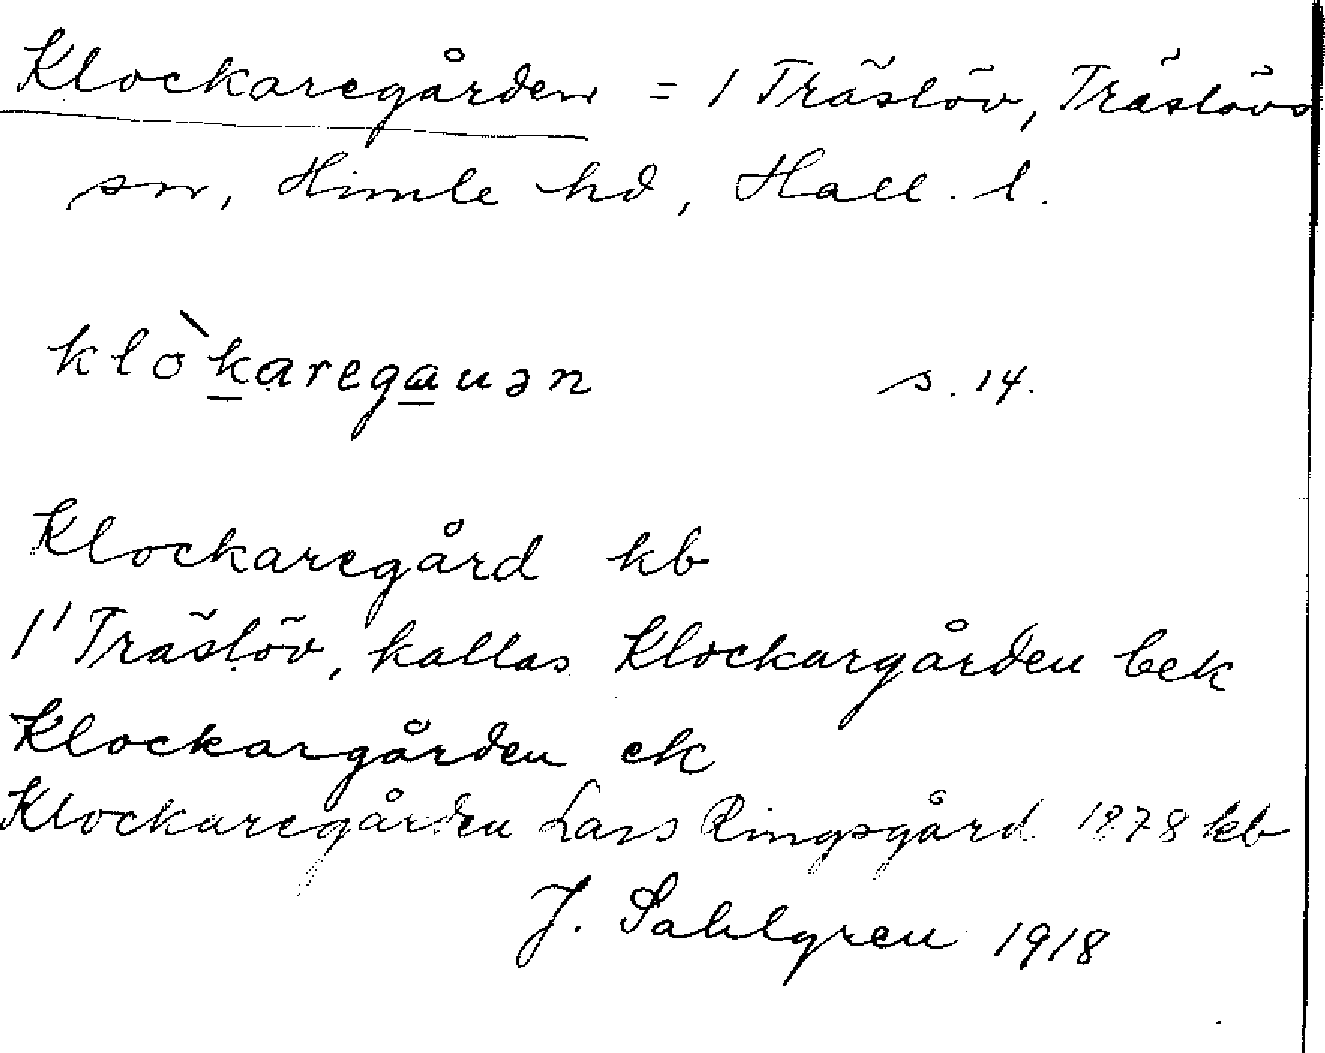 Klockaregården = 1 Träslöv, Träslövs
sn, Himle hd, Hall. l.
klò̀karegauən s. 14.
Klockaregård kb
1' Träslöv, kallas Klockargården bek
Klockargården ek
Klockaregården Lars Ringsgård 1878 kb
J. Sahlgren 1918